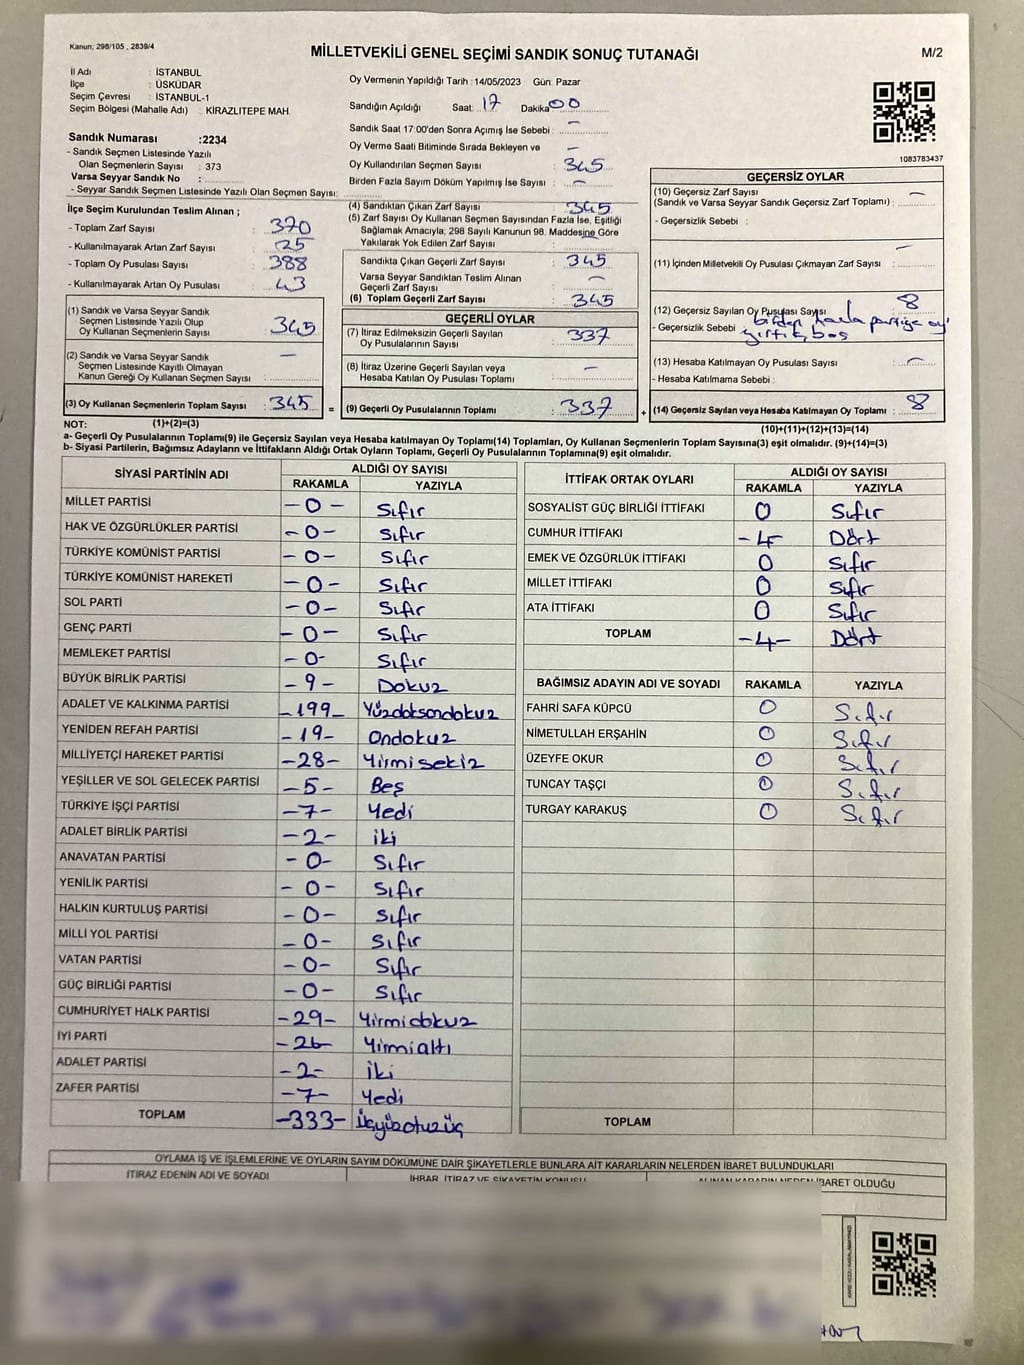 Kanun; 298/105 , 2839/4
MİLLETVEKİLİ GENEL SEÇİMİ SANDIK SONUÇ TUTANAĞI
M/2
İl Adı : İSTANBUL
İlçe : ÜSKÜDAR
Seçim Çevresi : İSTANBUL-1
Seçim Bölgesi (Mahalle Adı) : KİRAZLITEPE MAH.
Oy Vermenin Yapıldığı Tarih : 14/05/2023 Gün: Pazar
Sandığın Açıldığı Saat: 17 Dakika 00
Sandık Saat 17:00'den Sonra Açımış İse Sebebi : -
Oy Verme Saati Bitiminde Sırada Bekleyen ve -
Oy Kullandırılan Seçmen Sayısı : 345
Birden Fazla Sayım Döküm Yapılmış İse Sayısı : -
Sandık Numarası :2234
- Sandık Seçmen Listesinde Yazılı
Olan Seçmenlerin Sayısı : 373
Varsa Seyyar Sandık No :
- Seyyar Sandık Seçmen Listesinde Yazılı Olan Seçmen Sayısı:
1083783437
İlçe Seçim Kurulundan Teslim Alınan ;
- Toplam Zarf Sayısı : 370
- Kullanılmayarak Artan Zarf Sayısı : 25
- Toplam Oy Pusulası Sayısı : 388
- Kullanılmayarak Artan Oy Pusulası : 43
(1) Sandık ve Varsa Seyyar Sandık
Seçmen Listesinde Yazılı Olup
Oy Kullanan Seçmenlerin Sayısı : 345
(2) Sandık ve Varsa Seyyar Sandık -
Seçmen Listesinde Kayıtlı Olmayan
Kanun Gereği Oy Kullanan Seçmen Sayısı :
(3) Oy Kullanan Seçmenlerin Toplam Sayısı : 345
(4) Sandıktan Çıkan Zarf Sayısı : 345
(5) Zarf Sayısı Oy Kullanan Seçmen Sayısından Fazla İse, Eşitliği
Sağlamak Amacıyla, 298 Sayılı Kanunun 98. Maddesine Göre
Yakılarak Yok Edilen Zarf Sayısı : -
Sandıkta Çıkan Geçerli Zarf Sayısı : 345
Varsa Seyyar Sandıktan Teslim Alınan
Geçerli Zarf Sayısı : -
(6) Toplam Geçerli Zarf Sayısı : 345
GEÇERLİ OYLAR
(7) İtiraz Edilmeksizin Geçerli Sayılan
Oy Pusulalarının Sayısı : 337
(8) İtiraz Üzerine Geçerli Sayılan veya
Hesaba Katılan Oy Pusulası Toplamı : -
= (9) Geçerli Oy Pusulalarının Toplamı : 337
GEÇERSİZ OYLAR
(10) Geçersiz Zarf Sayısı -
(Sandık ve Varsa Seyyar Sandık Geçersiz Zarf Toplamı) :
- Geçersizlik Sebebi :
(11) İçinden Milletvekili Oy Pusulası Çıkmayan Zarf Sayısı : -
(12) Geçersiz Sayılan Oy Pusulası Sayısı 8
- Geçersizlik Sebebi : birden fazla partiye oy
yırtık, boş
(13) Hesaba Katılmayan Oy Pusulası Sayısı : -
- Hesaba Katılmama Sebebi :
+ (14) Geçersiz Sayılan veya Hesaba Katılmayan Oy Toplamı : 8
NOT: (1)+(2)=(3)
(10)+(11)+(12)+(13)=(14)
a- Geçerli Oy Pusulalarının Toplamı(9) ile Geçersiz Sayılan veya Hesaba katılmayan Oy Toplamı(14) Toplamları, Oy Kullanan Seçmenlerin Toplam Sayısına(3) eşit olmalıdır. (9)+(14)=(3)
b- Siyasi Partilerin, Bağımsız Adayların ve İttifakların Aldığı Ortak Oyların Toplamı, Geçerli Oy Pusulalarının Toplamına(9) eşit olmalıdır.
SİYASİ PARTİNİN ADI ALDIĞI OY SAYISI
RAKAMLA YAZIYLA
MİLLET PARTİSİ -0- Sıfır
HAK VE ÖZGÜRLÜKLER PARTİSİ -0- Sıfır
TÜRKİYE KOMÜNİST PARTİSİ -0- Sıfır
TÜRKİYE KOMÜNİST HAREKETİ -0- Sıfır
SOL PARTİ -0- Sıfır
GENÇ PARTİ -0- Sıfır
MEMLEKET PARTİSİ -0- Sıfır
BÜYÜK BİRLİK PARTİSİ -9- Dokuz
ADALET VE KALKINMA PARTİSİ -199- Yüzdoksandokuz
YENİDEN REFAH PARTİSİ -19- Ondokuz
MİLLİYETÇİ HAREKET PARTİSİ -28- Yirmisekiz
YEŞİLLER VE SOL GELECEK PARTİSİ -5- Beş
TÜRKİYE İŞÇİ PARTİSİ -7- Yedi
ADALET BİRLİK PARTİSİ -2- iki
ANAVATAN PARTİSİ -0- Sıfır
YENİLİK PARTİSİ -0- Sıfır
HALKIN KURTULUŞ PARTİSİ -0- Sıfır
MİLLİ YOL PARTİSİ -0- Sıfır
VATAN PARTİSİ -0- Sıfır
GÜÇ BİRLİĞİ PARTİSİ -0- Sıfır
CUMHURİYET HALK PARTİSİ -29- Yirmidokuz
İYİ PARTİ -26- Yirmialtı
ADALET PARTİSİ -2- İki
ZAFER PARTİSİ -7- Yedi
TOPLAM -333- Üçyüzotuzüç
İTTİFAK ORTAK OYLARI ALDIĞI OY SAYISI
RAKAMLA YAZIYLA
SOSYALİST GÜÇ BİRLİĞİ İTTİFAKI 0 Sıfır
CUMHUR İTTİFAKI -4- Dört
EMEK VE ÖZGÜRLÜK İTTİFAKI 0 Sıfır
MİLLET İTTİFAKI 0 Sıfır
ATA İTTİFAKI 0 Sıfır
TOPLAM -4- Dört
BAĞIMSIZ ADAYIN ADI VE SOYADI RAKAMLA YAZIYLA
FAHRİ SAFA KÜPCÜ 0 Sıfır
NİMETULLAH ERŞAHİN 0 Sıfır
ÜZEYFE OKUR 0 Sıfır
TUNCAY TAŞÇI 0 Sıfır
TURGAY KARAKUŞ 0 Sıfır
TOPLAM
OYLAMA İŞ VE İŞLEMLERİNE VE OYLARIN SAYIM DÖKÜMÜNE DAİR ŞİKAYETLERLE BUNLARA AİT KARARLARIN NELERDEN İBARET BULUNDUKLARI
İTİRAZ EDENİN ADI VE SOYADI İHBAR, İTİRAZ VE ŞİKAYETİN KONUSU ALINAN KARARIN NEDEN İBARET OLDUĞU